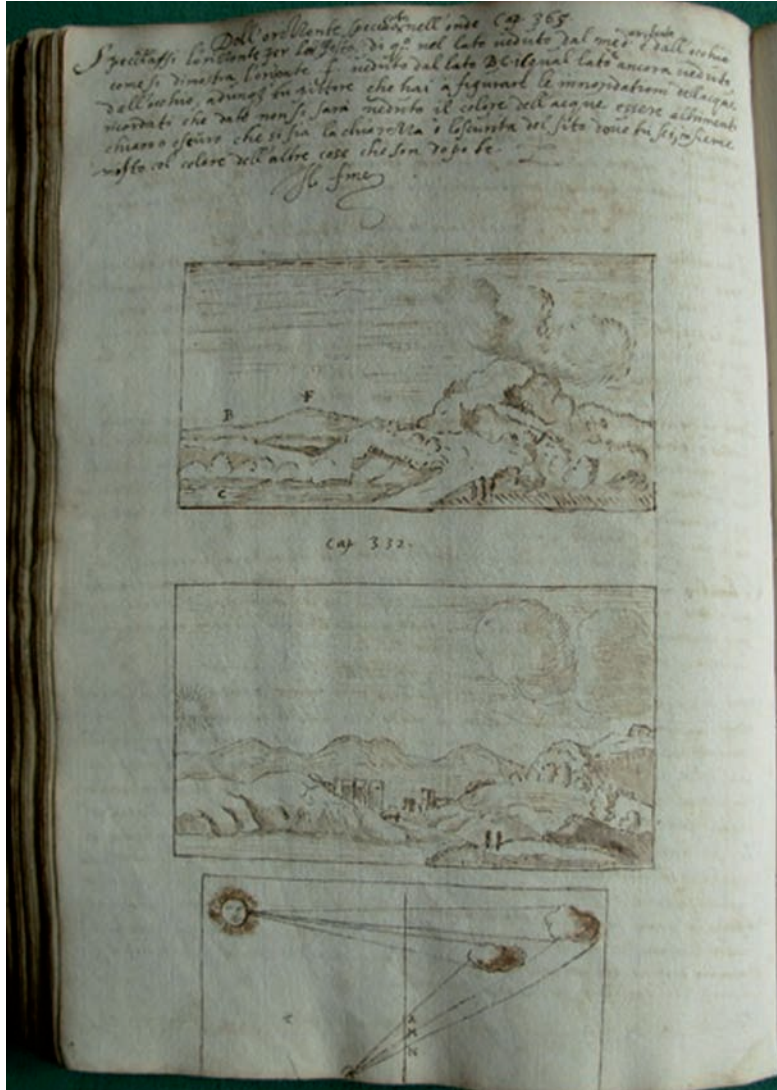 Dell'orizzonte specchiato nell'onde Cap 365
Specchiassi l'orizzonte per la sesta di qo nel lato ueduto dal orizonte e dall'occhio
come si dimostra l'orizonte f. ueduto dal lato BC il qual lato ancora ueduto
dell'occhio, adunq tu pittore che hai a figurare le innondationi dell'acque
ricordati che da te non si sarà ueduto il colore dell'acque essere altrimenti
chiaro o oscuro che si sia la chiarezza o l'oscurita del sito doue tu sei, insieme
misto col colore dell'altre cose che son dopo te.
Il fine
B
F
C
Cap 332.
N